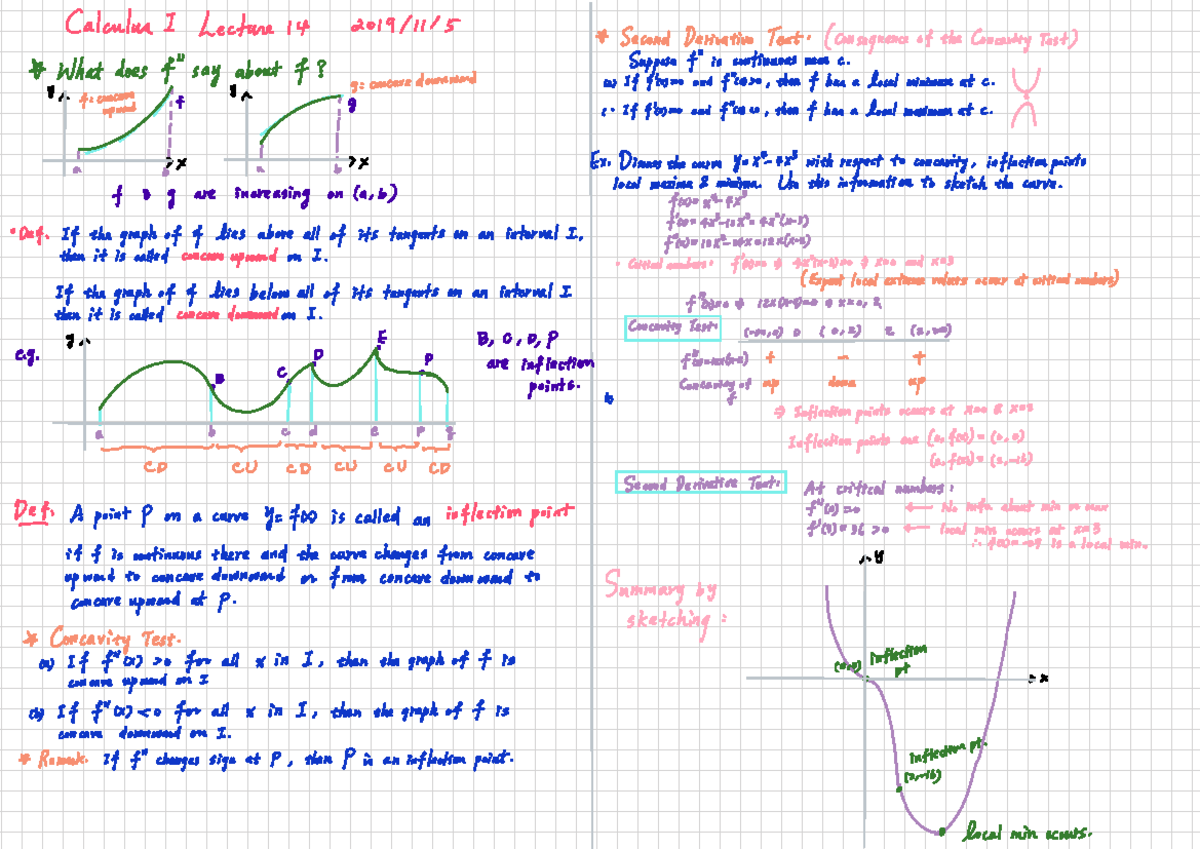 Calculus I Lecture 14 2019/11/5
* What does f" say about f?
y
f = concave
upward
f
a
b
x
y
g = concave downward
g
a
b
x
f & g are increasing on (a, b)
• Def. If the graph of f lies above all of its tangents on an interval I,
then it is called concave upward on I.
If the graph of f lies below all of its tangents on an interval I
then it is called concave downward on I.
e.g.
y
B
C
D
E
P
a b c d e p q
CD CU CD CU CU CD
B, C, D, P
are inflection
points.
Def: A point P on a curve y = f(x) is called an inflection point
if f is continuous there and the curve changes from concave
upward to concave downward or from concave downward to
concave upward at P.
* Concavity Test.
(a) If f"(x) > 0 for all x in I, then the graph of f is
concave upward on I
(b) If f"(x) < 0 for all x in I, then the graph of f is
concave downward on I.
* Remark. If f" changes sign at P, then P is an inflection point.
* Second Derivative Test. (Consequence of the Concavity Test)
Suppose f" is continuous near c.
(a) If f'(c)=0 and f"(c)>0, then f has a local minimum at c.
If f'(c)=0 and f"(c)<0, then f has a local maximum at c.
Ex. Discuss the curve y = x⁴-4x³ with respect to concavity, inflection points
local maxima & minima. Use this information to sketch the curve.
f(x) = x⁴-4x³
f'(x) = 4x³-12x² = 4x²(x-3)
f"(x) = 12x²-24x = 12x(x-2)
• Critical numbers: f'(x)=0 ⇒ 4x²(x-3)=0 ⇒ x=0 and x=3
(Expect local extreme values occur at critical numbers)
f"(x)=0 ⇒ 12x(x-2)=0 ⇒ x=0, 2
Concavity Test: (-∞,0) 0 (0,2) 2 (2,∞)
f"(x)=12x(x-2) + - +
Concavity of
f up down up
⇒ Inflection points occurs at
Inflection points are (0, f(0)) = (0, 0)
(2, f(2)) = (2, -16)
Second Derivative Test: At critical numbers:
f"(0) = 0 ← No info about min or max
f"(3) = 36 > 0 ← local min occurs at x=3
∴ f(3) = -27 is a local min.
Summary by
sketching:
y
x
(0,0) inflection
pt
inflection pt.
(2,-16)
local min occurs.